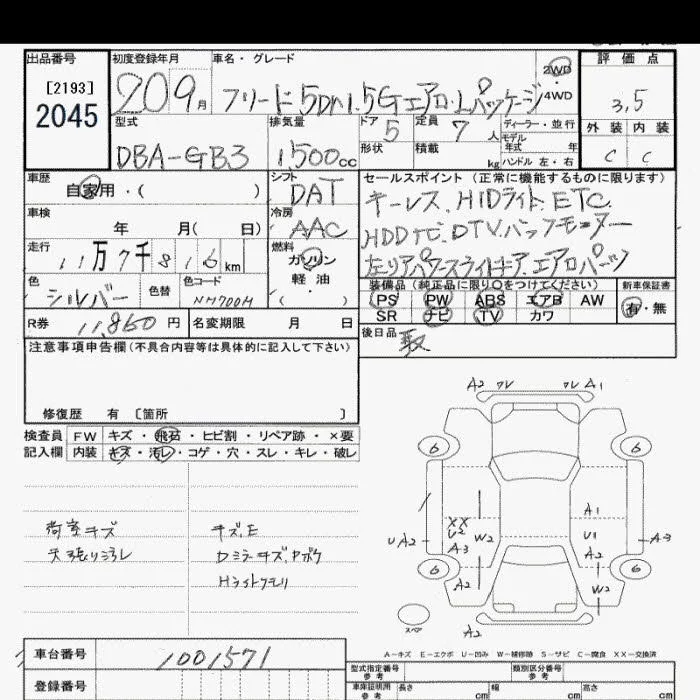 出品番号 初度登録年月 車名・グレード 評価点
[2193]
2045
20 9月 フリード 5Dr 1.5G エアロ・Lパッケージ 2WD 4WD 3,5
型式 排気量 ドア 5 定員 7人 ディーラー・並行 外装 内装
DBA-GB3 1500cc 形状 積載 kg モデル年式 年 ハンドル 左・右 C C
車歴 シフト セールスポイント(正常に機能するものに限ります)
自家用・( ) DAT キーレス、HIDライト、ETC
車検 冷房 HDDナビ、DTV、バックモニター
年 月( 日) AAC 左リアパワースライドドア、エアロパーツ
走行 燃料
11万7千816km ガソリン
色 色替 色コード 軽油
シルバー NH700H ( )
装備品(純正品に限り○をつけてください) 新車保証書
PS PW ABS エアB AW 有・無
SR ナビ TV カワ
R券 11,860円 名変期限 月 日 後日品 取
注意事項申告欄(不具合内容等は具体的に記入して下さい)
修復歴 有 〔箇所 〕
検査員 FW キズ・飛石・ヒビ割・リペア跡・×要
記入欄 内装 キズ・汚レ・コゲ・穴・スレ・キレ・破レ
荷室キズ キズ、E
天張り汚レ Dミラーキズ、Pボケ
Hライトクモリ
A2 ワレ ワレ A1
6 6
A1
XX
U2 U1
UA2 A3 W2 A2 A3
6 6
A2 W2
スペア A2
A-キズ E-エクボ U-凹み W-補修跡 S-サビ C-腐食 XX-交換済
車台番号 1001571
型式指定番号 参考 類別区分番号 参考
登録番号 車庫証明用 参考 長さ cm 幅 cm 高さ cm